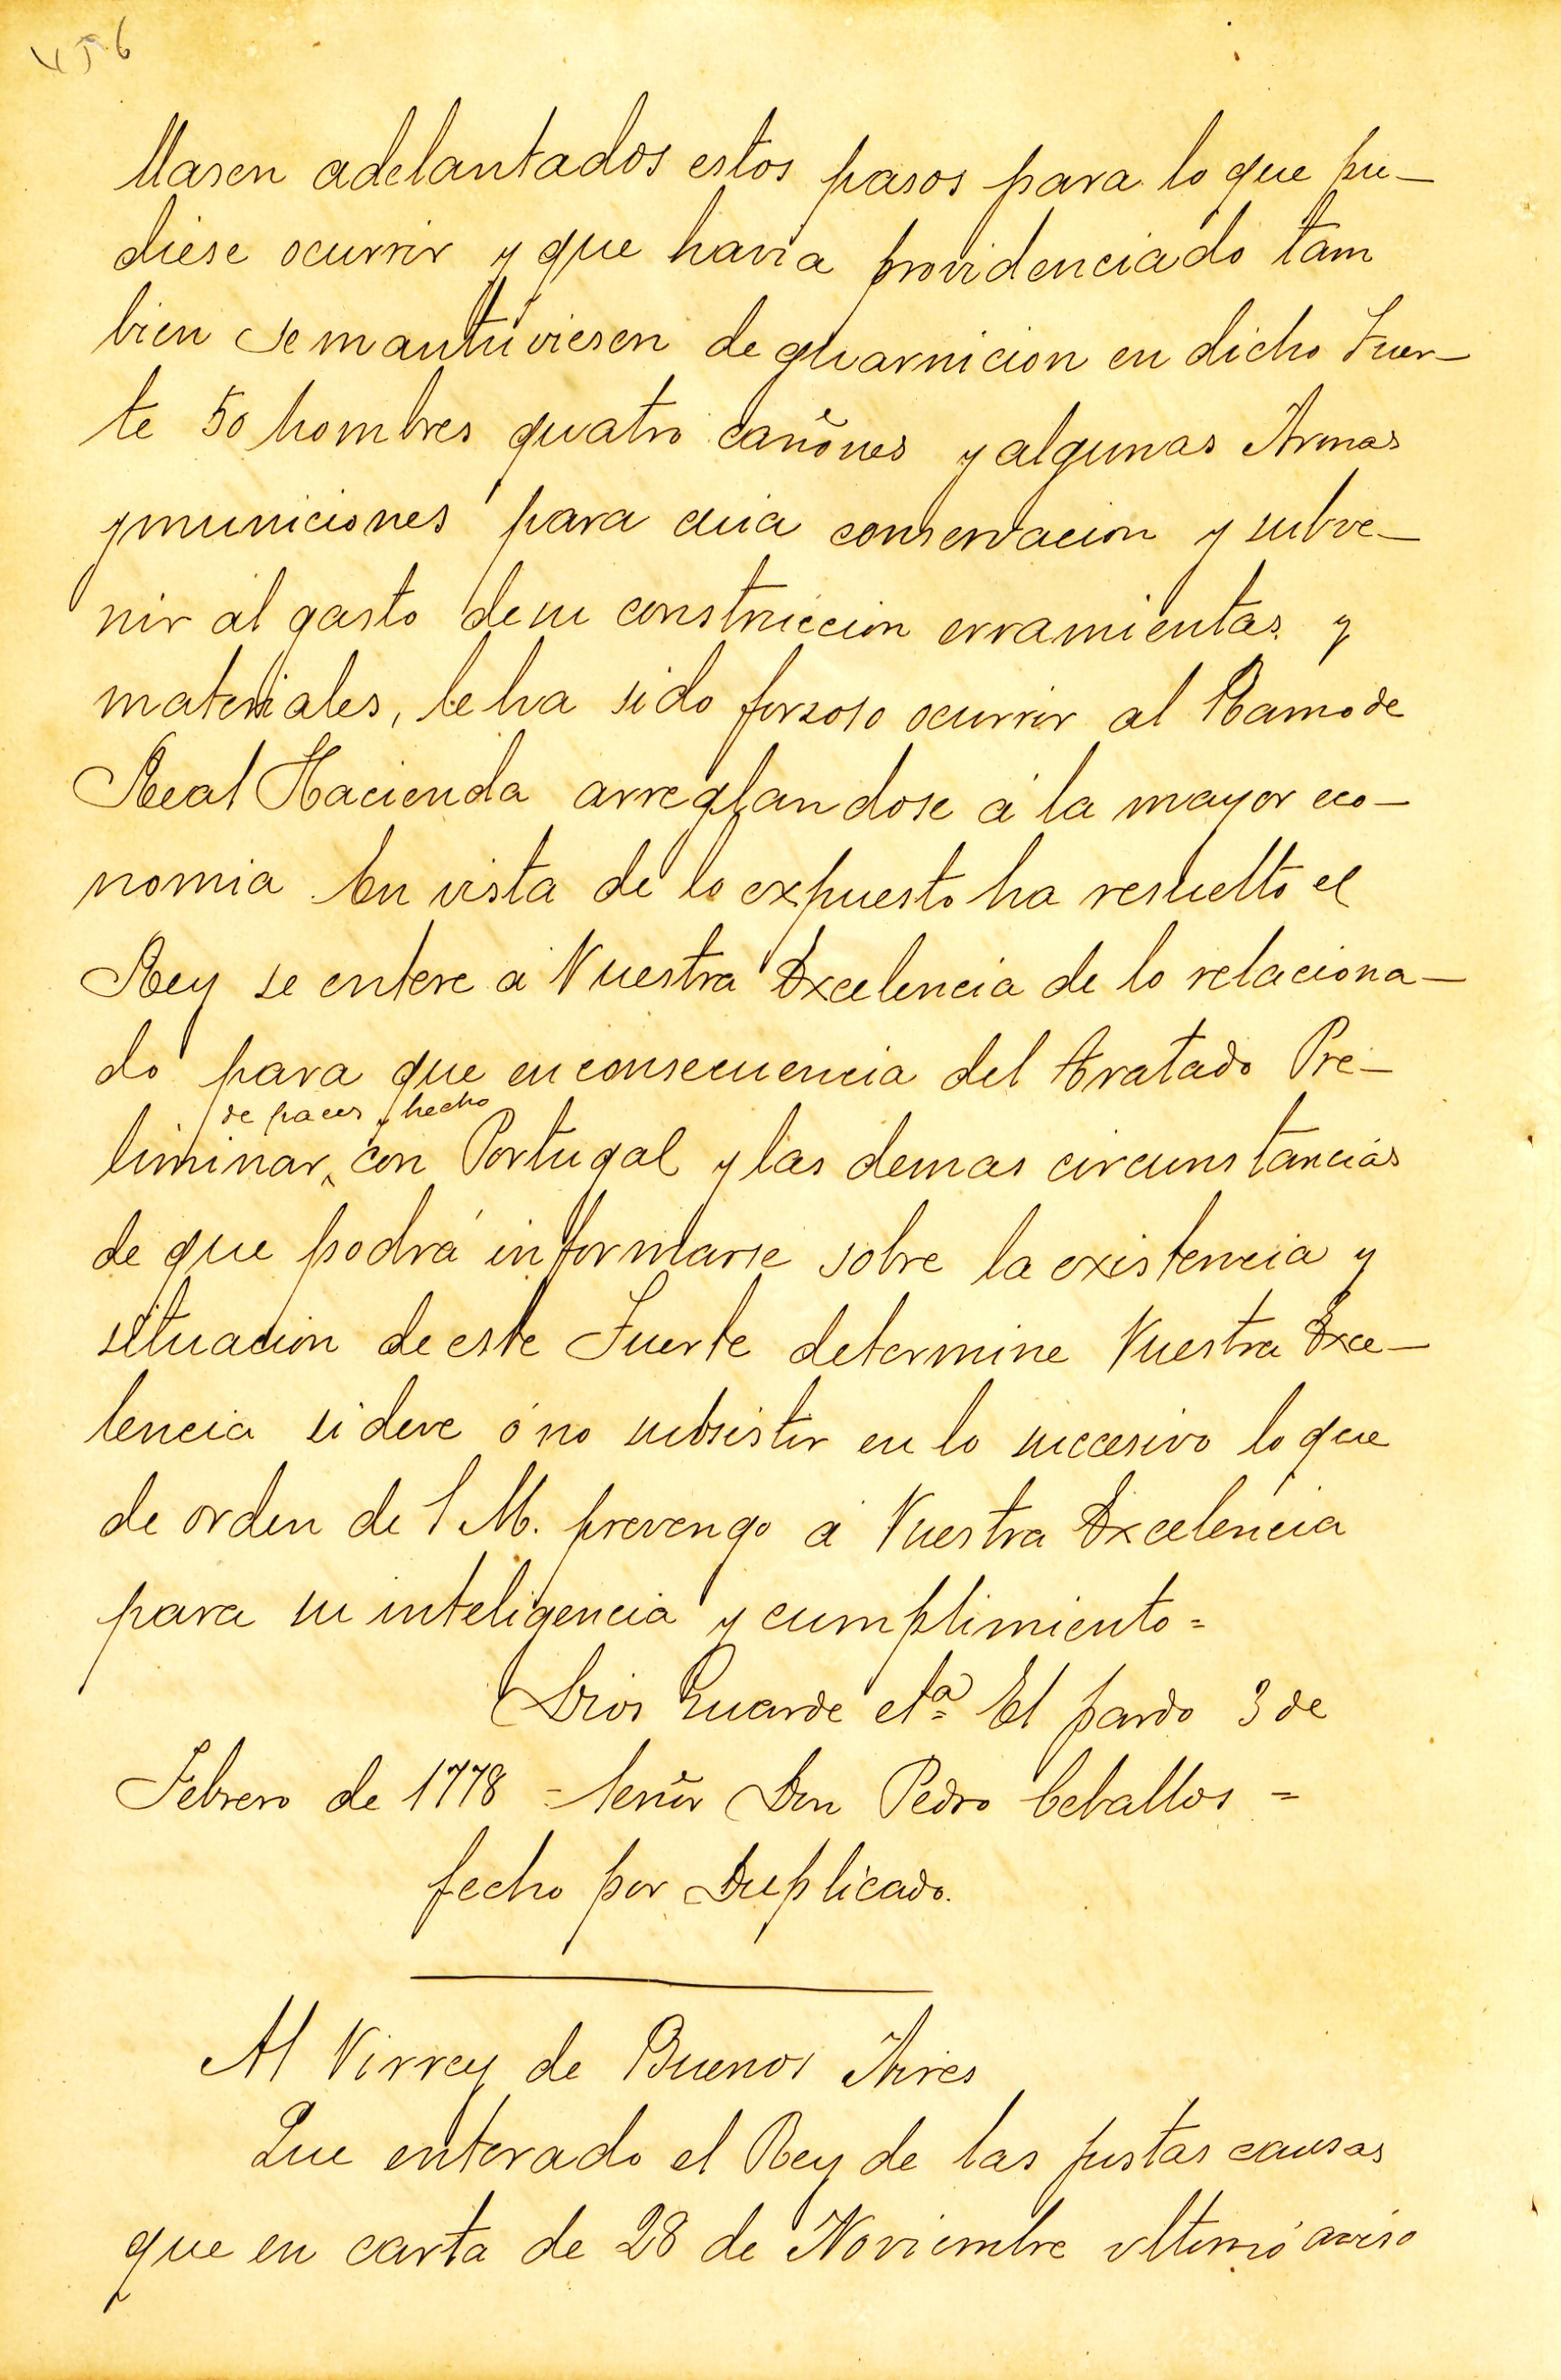 456
llasen adelantados estos pasos para lo que pu-
diese ocurrir y que havia providenciado tam
bien se mantuviesen de guarnicion en dicho Fuer-
te 50 hombres quatro cañones y algunas Armas
y municiones para cuia conservacion y subve-
nir al gasto de su construccion erramientas y
materiales, le ha sido forzoso ocurrir al Ramo de
Real Hacienda arreglandose á la mayor eco-
nomia En vista de lo expuesto ha resuelto el
Rey se entere á Vuestra Excelencia de lo relaciona-
do para que en consecuencia del tratado Pre-
de paces y hecho
liminar, con Portugal y las demas circunstancias
de que podrá informarse sobre la existencia y
situacion de este Fuerte determine Vuestra Exce-
lencia si deve ó no subsistir en lo succesivo lo que
de orden de S M. prevengo á Vuestra Excelencia
para su inteligencia y cumplimiento=
Dios Guarde etª= El pardo 3 de
Febrero de 1778 = Señor Don Pedro Ceballos =
fecho por Duplicado.
Al Virrey de Buenos Aires
Que enterado el Rey de las justas causas
que en carta de 28 de Noviembre ultimo aviso